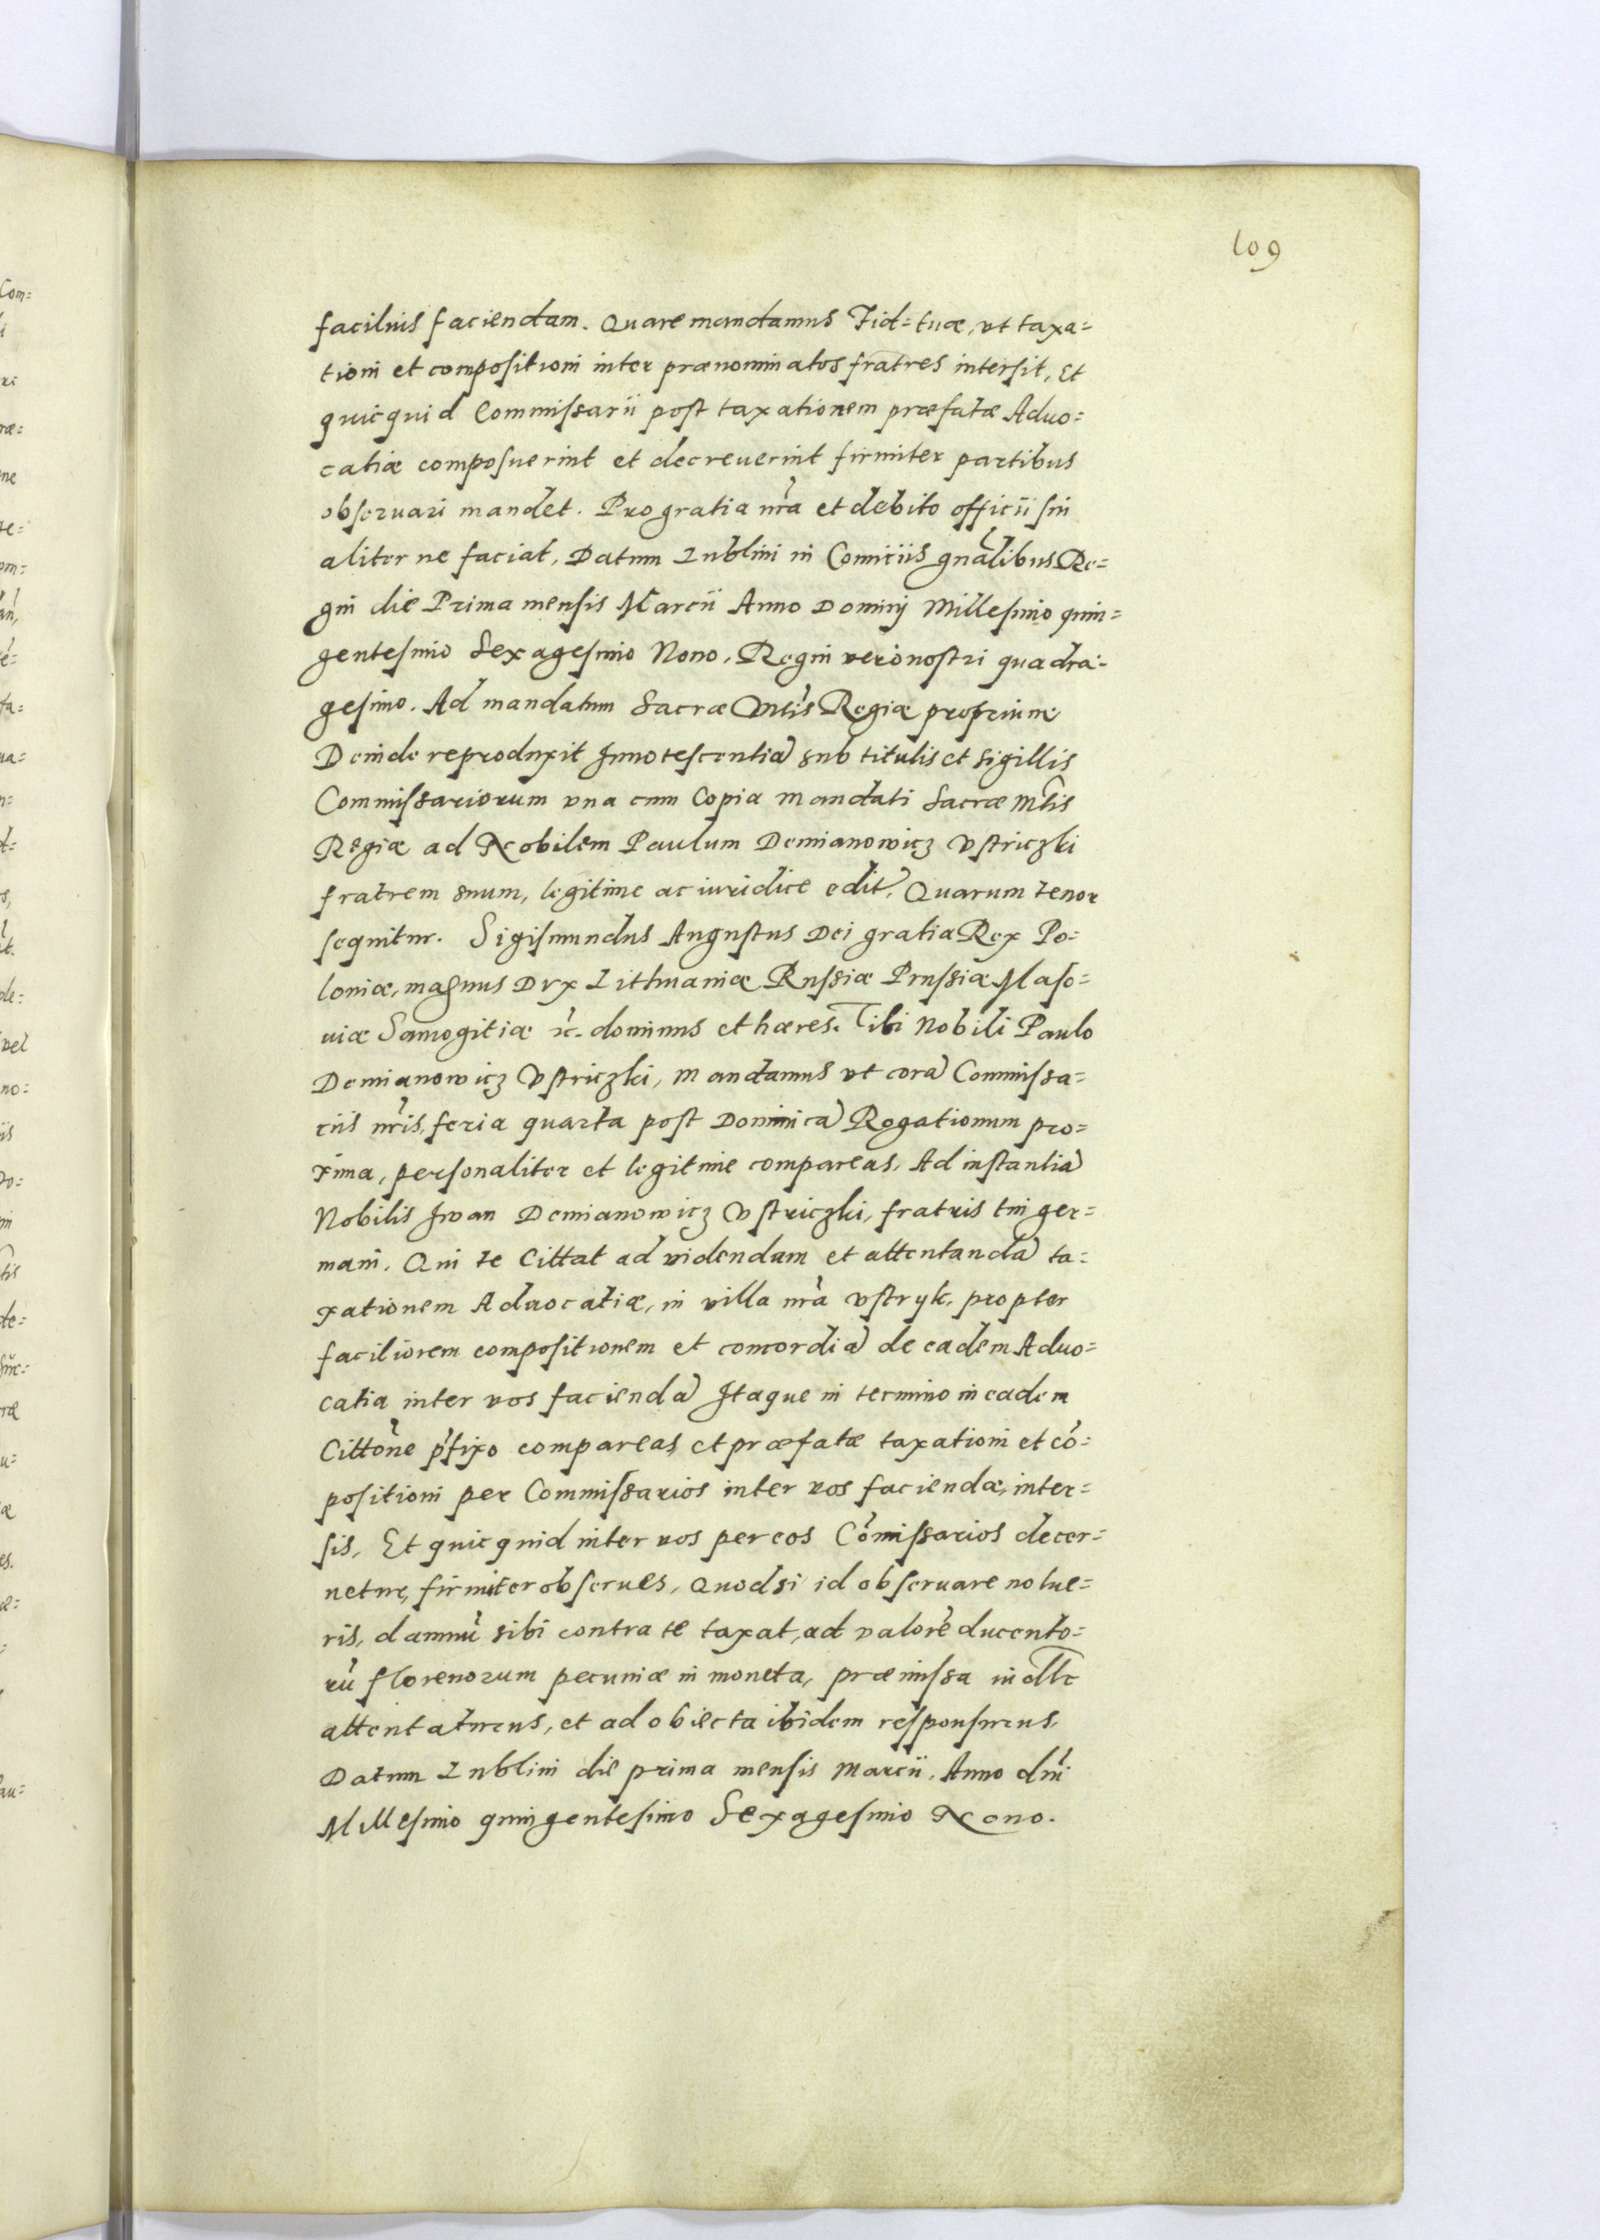 109
facilius faciendam. Quare mandamus Fid= tuæ, vt taxa=
tioni et compositioni inter prænominatos fratres intersit, Et
quicquid Commissarii post taxationem præfatæ Aduo=
catiæ composuerint et decreuerint firmiter partibus
obseruari mandet. Pro gratia nr̃a et debito officii sui
aliter ne faciat, Datum Lublini in Comitiis gnãlibus Re=
gni die Prima mensis Marcii Anno Dominj Millesimo quin=
gentesimo Sexagesimo Nono, Regni vero nostri quadra=
gesimo. Ad mandatum Sacræ Mtis Regiæ proprium
Deinde reproduxit Innotescentiã sub titulis et sigillis
Commissariorum vna cum Copia mandati Sacræ Mtis
Regiæ ad Nobilem Paulum Demianowicz Vstriczki
fratrem suum, legitime ac iuridice edit, Quarum tenor
sequitur. Sigismundus Augustus Dei gratia Rex Po=
loniæ, magnus Dvx Lithuaniæ Russiæ Prussiæ Maso=
uiæ Samogitiæ ꝛc. dominus et hæres. Tibi Nobili Paulo
Demianowicz Vstriczki, mandamus vt corã Commissa=
riis nr̃is, feria quarta post Dominicã Rogationum pro=
xima, personaliter et legitime compareas, Ad instantiã
Nobilis Iwan Demianowicz Vstriczki, fratris tui ger=
mani. Qui te Cittat ad videndum et attentandã ta=
xationem Aduocatiæ, in villa nr̃a Vstryk, propter
faciliorem compositionem et concordiã de eadem Aduo=
catia inter vos faciendã Itaque in termino in eadem
Cittõne p̃fixo compareas, et præfatæ taxationi et cõ=
positioni per Commissarios inter vos faciendæ, inter=
sis, Et quicquid inter vos per eos Cõmissarios decer=
netur, firmiter obserues, Quod si id obseruare nolue=
ris, damnũ sibi contra te taxat, ad valorẽ ducento=
rũ florenorum pecuniæ in moneta, præmissa in
attentaturus, et ad obiecta ibidem responsurus,
Datum Lublini die prima mensis Marcii, Anno dñi
Millesimo quingentesimo Sexagesimo Nono.